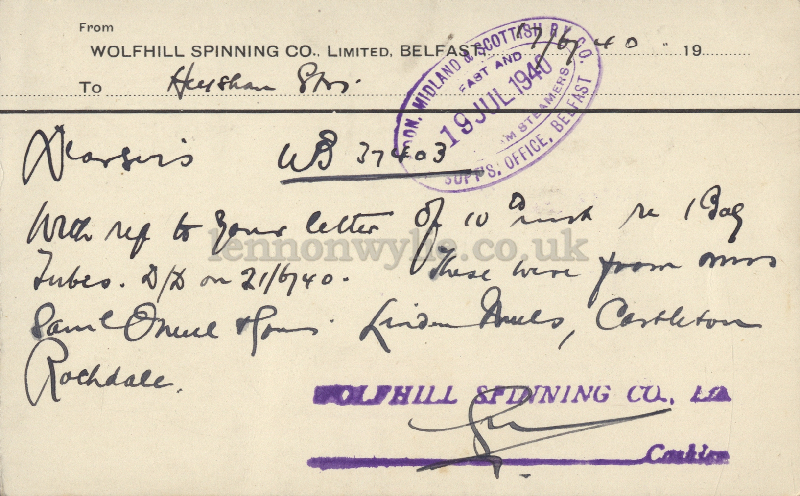 From
WOLFHILL SPINNING CO., LIMITED, BELFAST, 17/6/40 19
To Heysham Strs.
LONDON, MIDLAND & SCOTTISH RY. CO.
FAST AND
19 JUL 1940
STEAMERS
SUPT'S. OFFICE, BELFAST
Dear Sirs WB 37403
With ref to your letter of 10th inst re 1 Bag
Tubes. D/D on 21/6/40. These were from Mrs
Saml O'Neill & Sons Linden Mills, Castleton
Rochdale.
lennonwylie.co.uk
WOLFHILL SPINNING CO., Ld.
Cashier